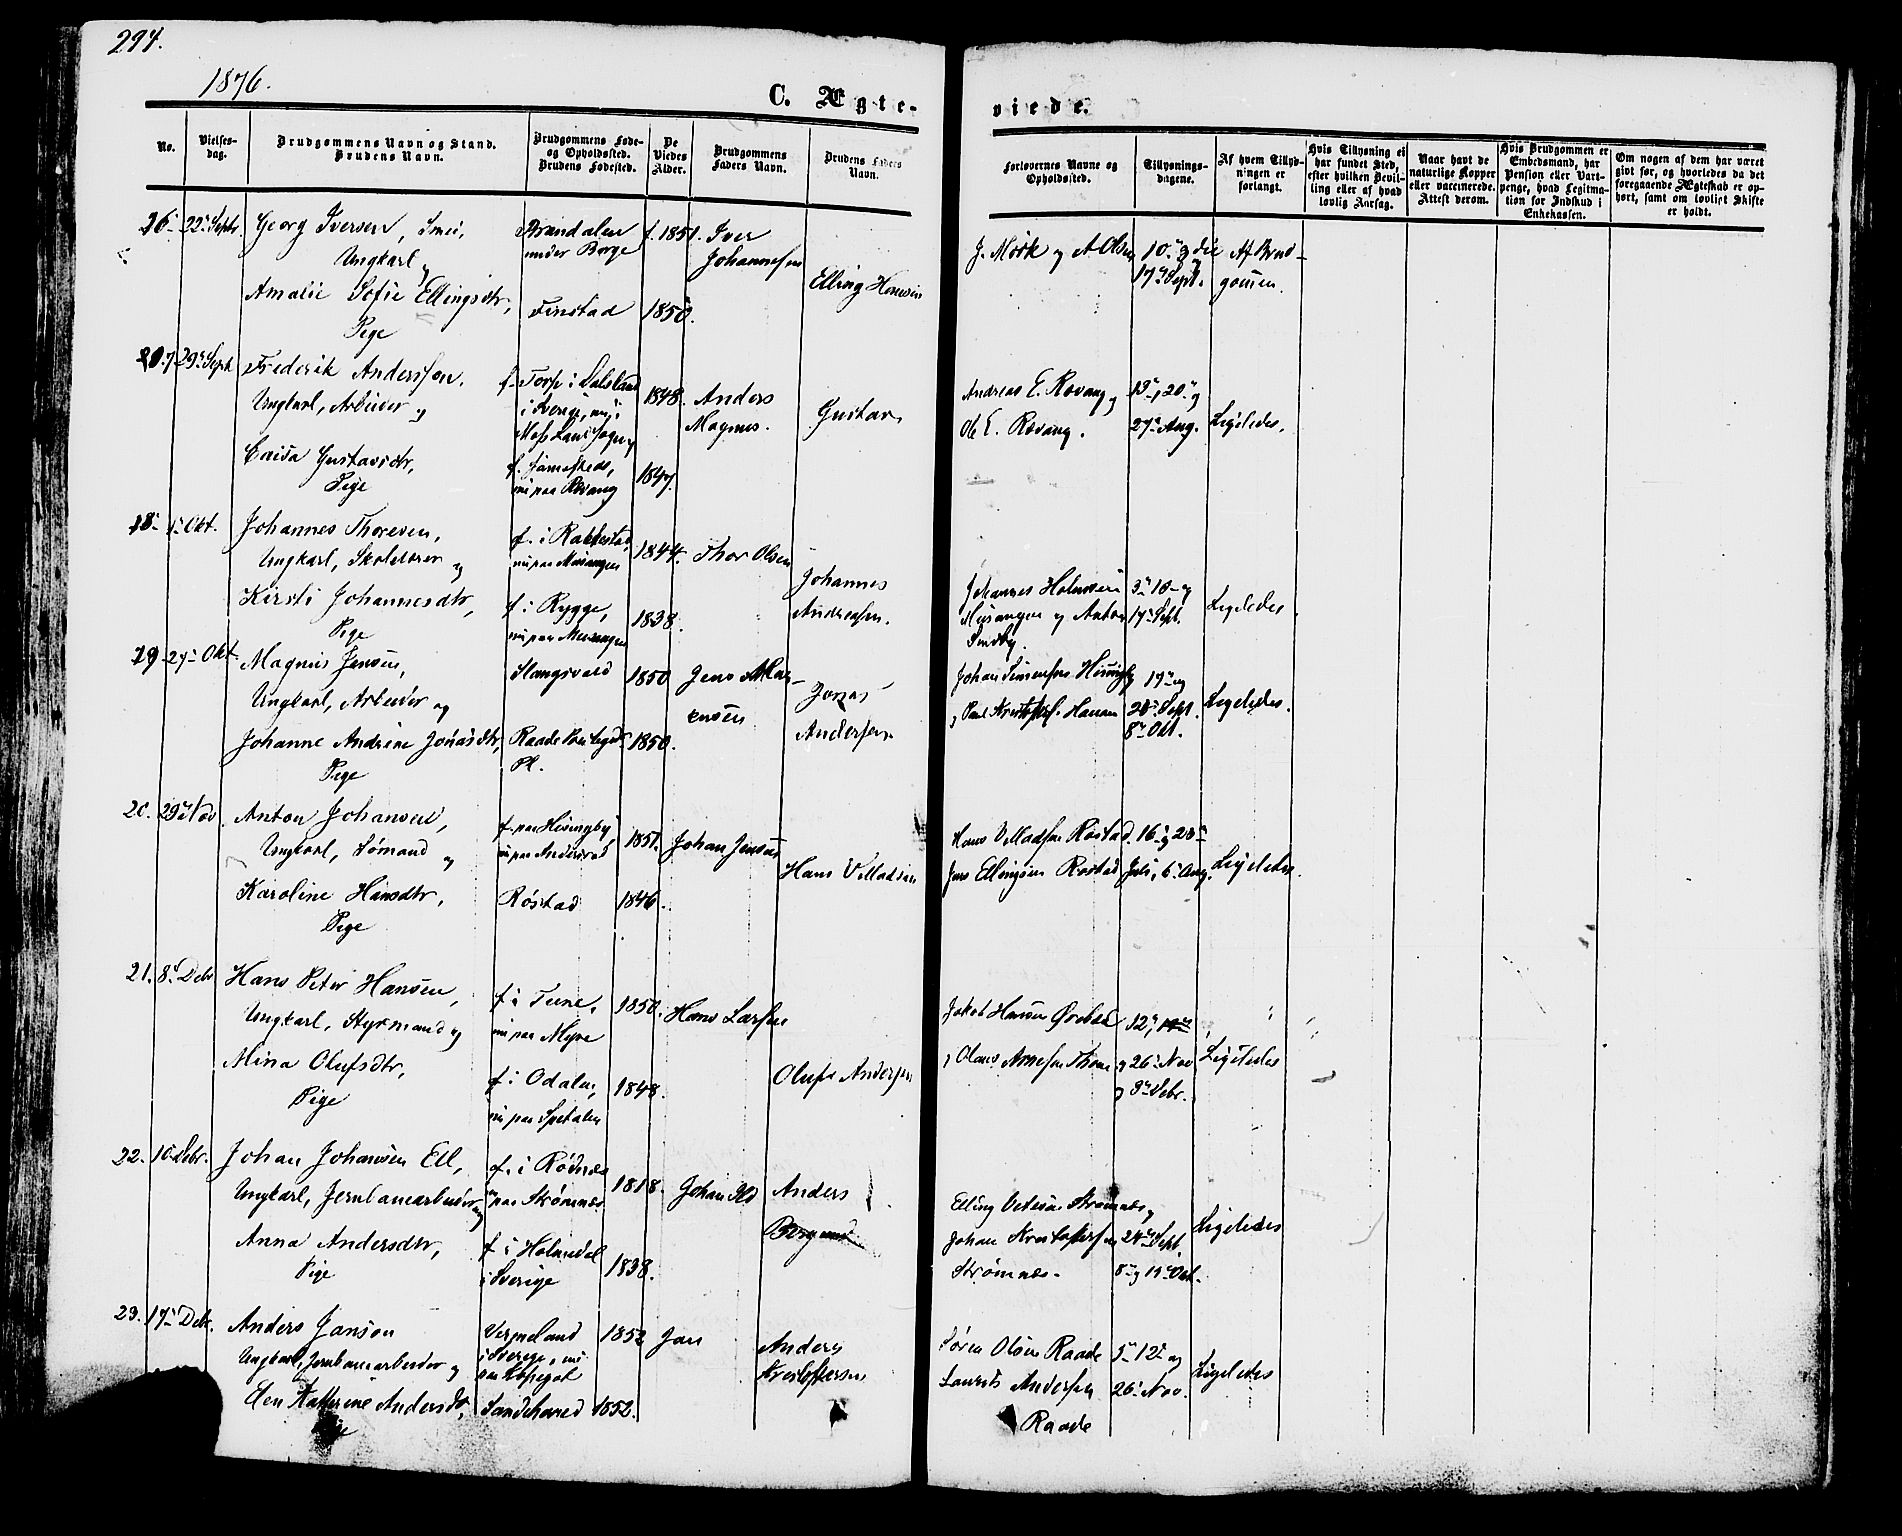 294.
1876.
C. Ægte-
viede.
No.
Vielses-
dag.
Brudgommens Navn og Stand.
Brudens Navn.
Brudgommens Føde-
og Opholdssted.
Brudens Fødested.
De
Viedes
Alder.
Brudgommens
Faders Navn.
Brudens Faders
Navn.
Forlovernes Navne og
Opholdssted.
Tillysnings-
dagene.
Af hvem Tillys-
ningen er
forlangt.
Hvis Tillysning ei
har fundet Sted,
efter hvilken Bevil-
ling eller af hvad
lovlig Aarsag.
Naar havt de
naturlige Kopper
eller vaccinerede.
Attest derom.
Hvis Brudgommen er
Embedsmand, har
Pension eller Vart-
penge, hvad Legitima-
tion for Indskud i
Enkekassen.
Om nogen af dem har været
givt før, og hvorledes da det
foregaaende Ægteskab er op-
hørt, samt om lovligt Skifte
er holdt.
22 Septr. Georg Iversen, Smed,
Ungkarl og
Amalie Sofie Ellingsdtr,
Pige
under Borge
Finstad
f. 1851.
1850.
Iver
Johannesen
Elling Hansen
J. Mørk og A Olsen
10 og
17 Sept.
Af Brud-
gommen.
29 Sept Frederik Andersson.
Ungkarl, Arbeider og
Caisa Gustavsdtr,
Pige
f. Torp i Dalsland
i Sverige, nu i
Moss Landsogn
f. sammesteds,
nu paa Rovang
1848.
1847.
Anders
Magnus.
Gustav
Andreas E. Rovang og
Ole E. Rovang.
13, 20 og
27 Aug.
Ligeledes.
18 Okt. Johannes Thoresen,
Ungkarl, Skolelærer og
Kirsti Johannesdtr,
Pige
f. i Rakkestad,
nu paa Musangen
f. i Rygge,
nu paa Musangen
1844.
1838.
Thor Olsen
Johannes
Andreasen.
Johannes Halvorsen
Musangen og Anton
Sundby.
3 10 og
17 Sept.
Ligeledes.
19 27 Okt. Magnus Jensen,
Ungkarl, Arbeider og
Johanne Andrine Jonasdtr,
Pige
Slangsvold
Raade Præstegds
Pl.
1850
1850.
Jens Mag-
nusen
Jonas
Andersen
17 og
24 Sept.
8 Okt.
Ligeledes.
20. 29 Nov. Anton Johansen,
Ungkarl, Sømand og
Karoline Hansdtr,
Pige
f. paa Huseby
nu paa Anderød
Røstad
1851.
1846.
Johan Jensen
Hans V Madsen
Hans V Madsen Røstad
Jens Ellingsen Røstad
16 23
Juli, 6 Aug.
Ligeledes.
21. 8 Debr Hans Peter Hansen,
Ungkarl, Styrmand og
Mina Olufsdtr,
Pige
f i Tune,
nu paa Myre
f. i Odalen,
nu paa Spetalen
1850.
1848.
Hans Larsen
Oluf Andersen
Jakob Hansen Ørebæk
Olaus Arnesen Thom
12,
og 26 Nov
og 3 Debr.
Ligeledes
22. 10 Debr. Johan Johansen Ell,
Ungkarl, Jernbanearbeider og
Anna Andersdtr,
Pige
f. i Rødenæs
nu paa Strømnæs
f i Holmedal
i Sverige
1818.
1838.
Johan
Anders
Elling Strømnæs og
Johan Kristofersen
Strømnæs.
24 Sept.
8 og 15 Okt.
Ligeledes
23. 17 Debr. Anders Janson
Ungkarl, Jernbanearbeider og
Elen Kathrine Andersdtr,
Pige
Vermeland
i Sverige, nu
Sandehered
1852
1852.
Jan
Anders
Kristoffersen
Søren Olsen Raade
Laurits Andersen
Raade
5 12 og
26 Nov.
Ligeledes